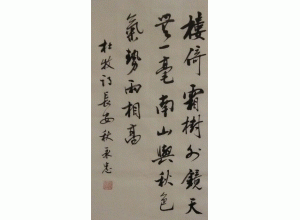 楼倚霜树外镜天
無一毫南山與秋色
氣勢兩相高
杜牧詩長安秋